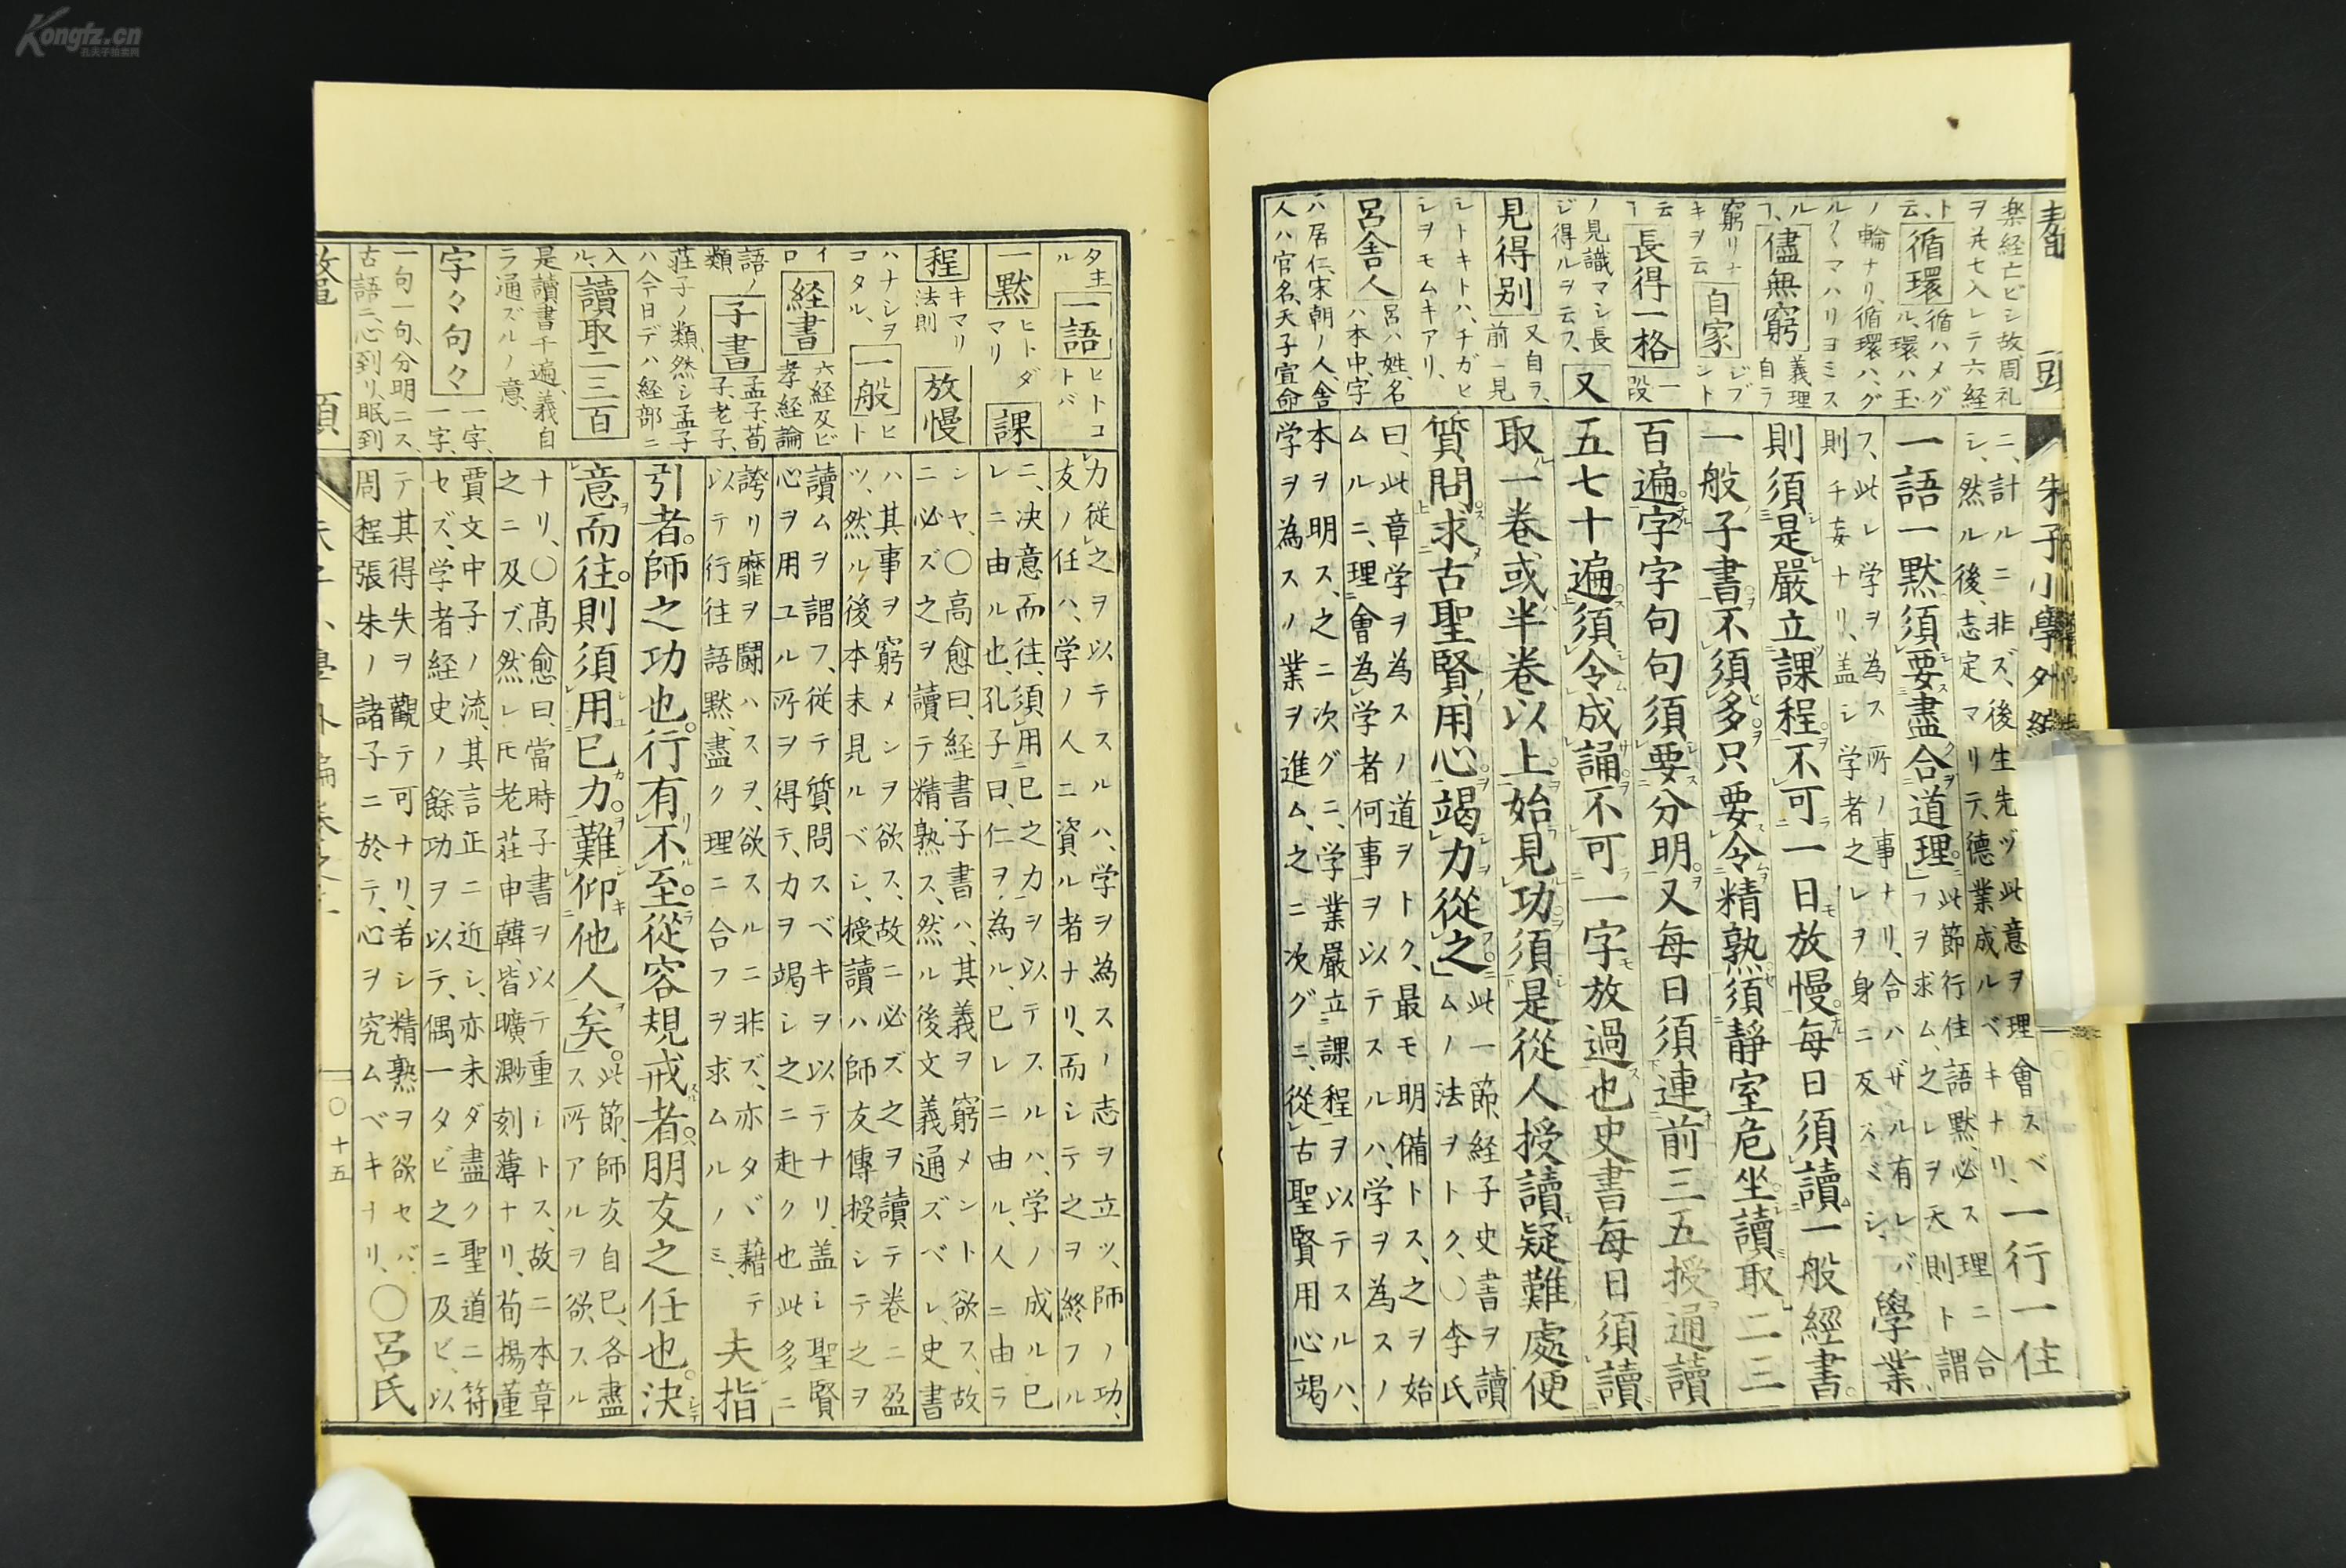 Kongfz.cn
孔夫子拍卖网
頭
朱子小學外編
楽経亡ビシ故周礼
ト云、循環循ハメグル、環ハ玉
ノ輪ナリ、循環ハ、グ
ルグルマハリヨミス
ル儘無窮義理自ラ
窮リナキヲ云自家ジブント
云長得一格一段
ノ見識マシ長ジ得ルヲ云フ、又
見得別又自ラ、前見
シトキトハ、チガヒ
シヲモムキアリ、
呂舎人呂ハ姓、名ハ本中、字
ハ居仁、宋朝ノ人、舎
人ハ官名、天子宣命
ニ、計ルニ非ズ、後生先ヅ此意ヲ理會スベ、
シ、然ル後、志定マリテ、德業成ルベキナリ、一行一住
一語一默須要盡合道理此節行住語默必ス理ニ合フヲ求ム、之レヲ天則ト謂
フ、此レ学ヲ為ス所ノ事ナリ、合ハザル有レバ
則チ妄ナリ、盖シ学者之レヲ身ニ反スベシ、學業
則須是嚴立課程不可一日放慢每日須讀一般經書
一般子書不須多只要令精熟須靜室危坐讀取二三
百遍字字句句須要分明又每日須連前三五授通讀
五七十遍須令成誦不可一字放過也史書每日須讀
取一卷或半卷以上始見功須是從人授讀疑難處便
質問求古聖賢用心竭力從之此一節、経子史書ヲ讀ムノ法ヲトク、〇李氏
曰、此章学ヲ為スノ道ヲトク、最モ明備トス、之ヲ始
ムルニ、理會為学者何事ヲ以テスルハ、学ヲ為スノ
本ヲ明ス、之ニ次グニ、学業嚴立課程ヲ以テスルハ、
学ヲ為スノ業ヲ進ム、之ニ次グニ、從古聖賢用心竭
タル一語ヒトコトバ
一黙ヒトダマリ課
程キマリ法則放慢
ハナシヲコタル、一般ヒト
イロ経書六経及ビ孝経論
語ノ類子書孟子、荀子、老子、
荘子ノ類、然シ孟子
ハ今日デハ経部ニ
入ル、讀取二三百
是讀書千遍、義自
ラ通ズルノ意、
字々句々一字、一字、
一句一句、分明ニス、
古語ニ、心到リ、眼到
力從之ヲ以テスルハ、学ヲ為スノ志ヲ立ツ、師ノ功、
友ノ任ハ、学ノ人ニ資ル者ナリ、而シテ之ヲ終フル
ニ、決意而往、須用已之力ヲ以テスルハ、学ノ成ル已
レニ由ル也、孔子曰、仁ヲ為ル、已レニ由ル、人ニ由ラ
ンヤ、〇高愈曰、経書子書ハ、其義ヲ窮メント欲ス、故
ニ必ズ之ヲ讀テ精熟ス、然ル後文義通ズベレ、史書
ハ其事ヲ窮メンヲ欲ス、故ニ必ズ之ヲ讀テ卷ニ盈
ツ、然ル後本末見ルベシ、授讀ハ師友傳授シテ之ヲ
讀ムヲ謂フ、従テ質問スベキヲ以テナリ、盖シ聖賢
心ヲ用ユル所ヲ得テ、力ヲ竭シ之ニ赴ク也此多ニ
誇リ靡ヲ闘ハスヲ、欲スルニ非ズ、亦タヾ藉テ
以テ行往語黙、盡ク理ニ合フヲ求ムルノミ、夫指
引者師之功也行有不至從容規戒者朋友之任也決
意而往則須用已力難仰他人矣此節、師友自已、各盡ス所アルヲ欲ス、ル
ナリ、〇髙愈曰、當時子書ヲ以テ重シトス、故ニ本章
之ニ及ブ、然レ𪜈老荘申韓、皆曠渺刻薄ナリ、荀揚董
賈文中子ノ流、其言正ニ近シ、亦未ダ盡ク聖道ニ符
セズ、学者経史ノ餘功ヲ以テ、偶一タビ之ニ及ビ、以
テ其得失ヲ觀テ可ナリ、若シ精熟ヲ欲セバ、〇呂氏
周程張朱ノ諸子ニ於テ、心ヲ究ムベキナリ、
〇十五